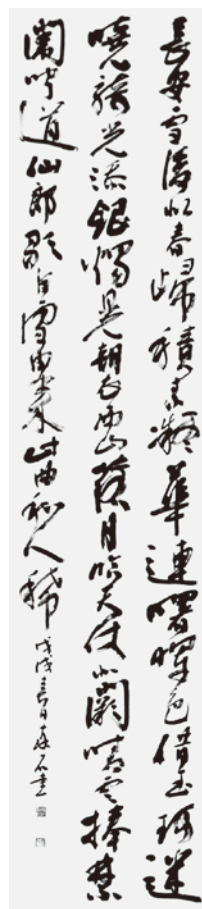 長安雪後似春歸積素凝華連曙暉色借玉珂迷
曉騎光添銀燭晃朝衣西山落月臨天仗北闕晴雲捧禁
闈聞道仙郎歌白雪由來此曲和人稀 戊戌春日